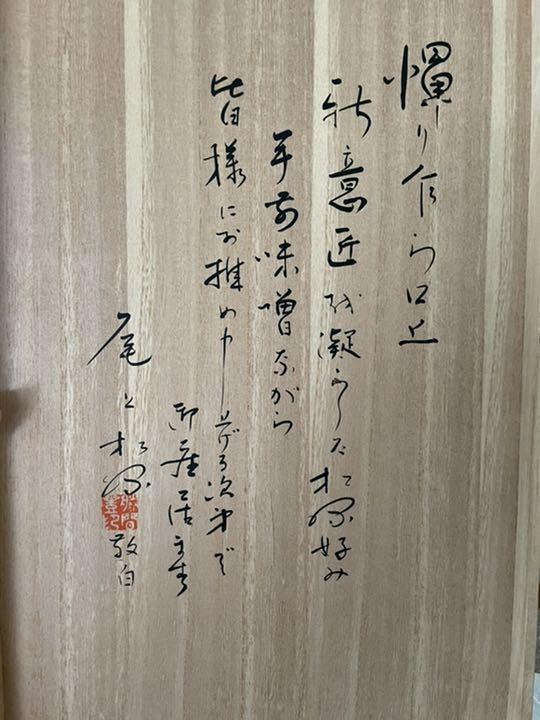 憚り乍ら口上
新意匠を凝らした松緑好み
手前味噌ながら
皆様にお推め申し上げる次第で
御座居ます
尾上松緑 敬白